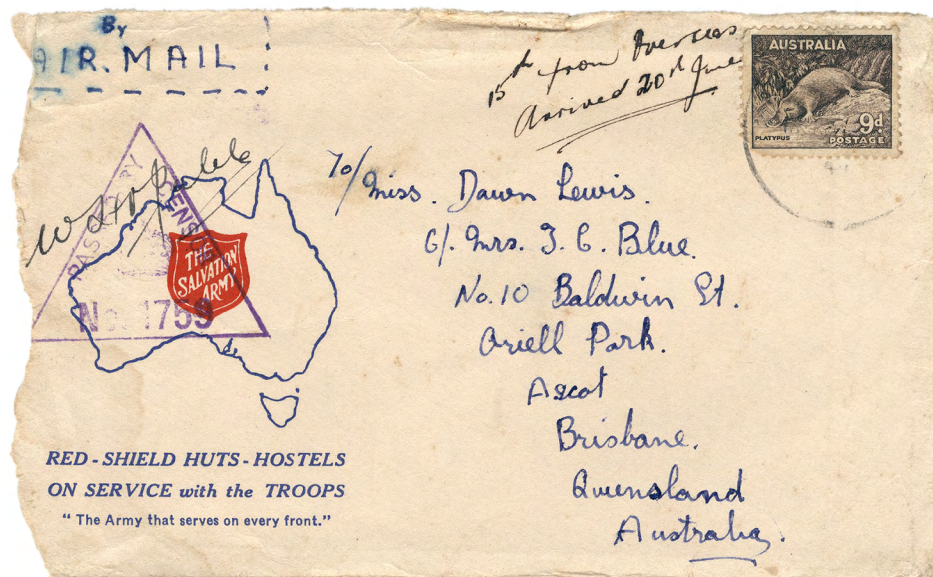 By
AIR. MAIL
15th from Overseas
Arrived 20th June
AUSTRALIA
PLATYPUS
9d
POSTAGE
PASSED BY
CENSOR
No. 1759
THE
SALVATION
ARMY
To/ Miss. Dawn Lewis.
C/. Mrs. J. C. Blue.
No. 10 Baldwin St.
Oriell Park.
Ascot
Brisbane.
Queensland
Australia.
RED-SHIELD HUTS-HOSTELS
ON SERVICE with the TROOPS
"The Army that serves on every front."